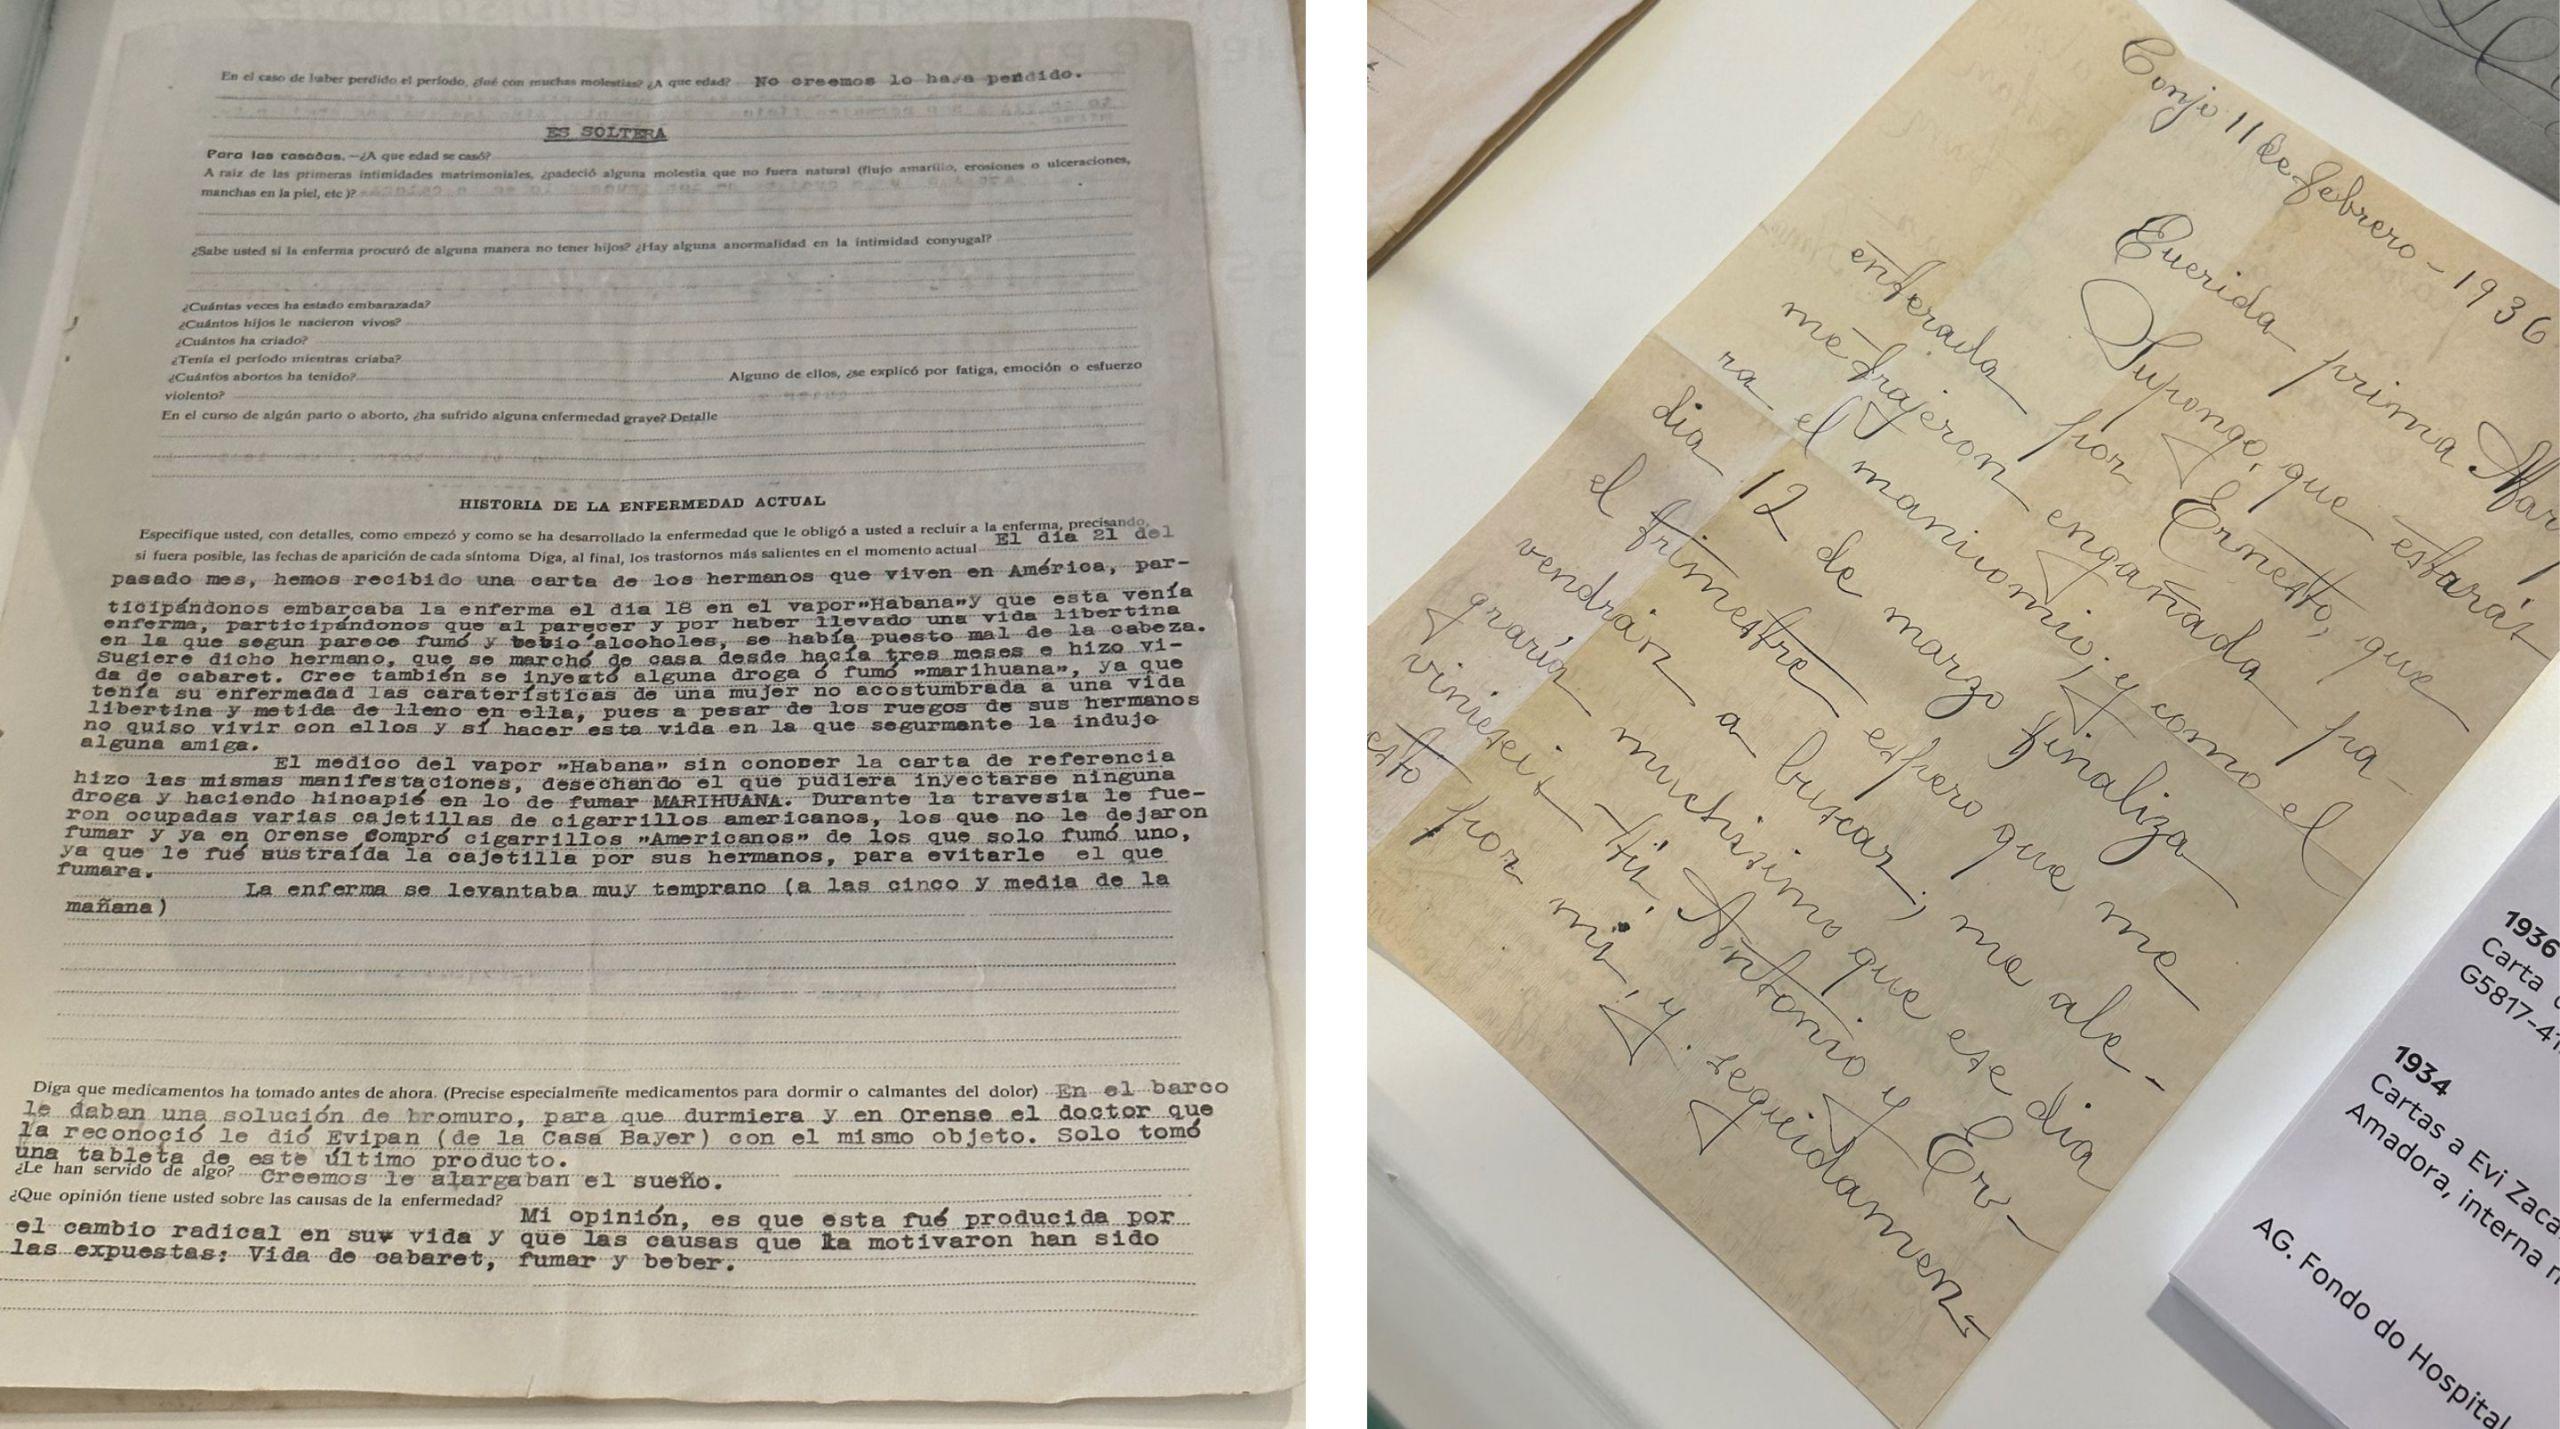 En el caso de haber perdido el período, ¿fué con muchas molestias? ¿A que edad? No creemos lo haya perdido.
ES SOLTERA
Para las casadas.—¿A que edad se casó?
A raíz de las primeras intimidades matrimoniales, ¿padeció alguna molestia que no fuera natural (flujo amarillo, erosiones o ulceraciones,
manchas en la piel, etc)?
¿Sabe usted si la enferma procuró de alguna manera no tener hijos? ¿Hay alguna anormalidad en la intimidad conyugal?
¿Cuántas veces ha estado embarazada?
¿Cuántos hijos le nacieron vivos?
¿Cuántos ha criado?
¿Tenía el período mientras criaba?
¿Cuántos abortos ha tenido? Alguno de ellos, ¿se explicó por fatiga, emoción o esfuerzo
violento?
En el curso de algún parto o aborto, ¿ha sufrido alguna enfermedad grave? Detalle
HISTORIA DE LA ENFERMEDAD ACTUAL
Especifique usted, con detalles, como empezó y como se ha desarrollado la enfermedad que le obligó a usted a recluir a la enferma, precisando,
si fuera posible, las fechas de aparición de cada síntoma Diga, al final, los trastornos más salientes en el momento actual El día 21 del
pasado mes, hemos recibido una carta de los hermanos que viven en América, par-
ticipándonos embarcaba la enferma el dia 18 en el vapor"Habana"y que esta venía
enferma, participándonos que al parecer y por haber llevado una vida libertina
en la que segun parece fumó y bebió alcoholes, se había puesto mal de la cabeza.
Sugiere dicho hermano, que se marchó de casa desde hacía tres meses e hizo vi-
da de cabaret. Cree también se inyectó alguna droga ó fumó "marihuana", ya que
tenía su enfermedad las caraterísticas de una mujer no acostumbrada a una vida
libertina y metida de lleno en ella, pues a pesar de los ruegos de sus hermanos
no quiso vivir con ellos y sí hacer esta vida en la que segurmante la indujo
alguna amiga.
El medico del vapor "Habana" sin conocer la carta de referencia
hizo las mismas manifestaciones, desechando el que pudiera inyectarse ninguna
droga y haciendo hincapié en lo de fumar MARIHUANA. Durante la travesia le fue-
ron ocupadas varias cajetillas de cigarrillos americanos, los que no le dejaron
fumar y ya en Orense compró cigarrillos "Americanos" de los que solo fumó uno,
ya que le fué sustraída la cajetilla por sus hermanos, para evitarle el que
fumara.
La enferma se levantaba muy temprano (a las cinco y media de la
mañana)
Diga que medicamentos ha tomado antes de ahora. (Precise especialmente medicamentos para dormir o calmantes del dolor) En el barco
le daban una solución de bromuro, para que durmiera y en Orense el doctor que
la reconoció le dió Evipan (de la Casa Bayer) con el mismo objeto. Solo tomó
una tableta de este último producto.
¿Le han servido de algo? Creemos le alargaban el sueño.
¿Que opinión tiene usted sobre las causas de la enfermedad?
Mi opinión, es que esta fué producida por
el cambio radical en suv vida y que las causas que la motivaron han sido
las expuestas: Vida de cabaret, fumar y beber.
Conjo 11 de febrero - 1936
Querida prima Mar
Supongo, que estarás
enterada por Ernesto, que
me trajeron engañada pa-
ra el manicomio; y como el
dia 12 de marzo finaliza
el trimestre espero que me
vendrán a buscar; me ale-
graría muchisimo que ese dia
vinieseis tú, Antonio y Er-
esto por mi, y seguidamen-
1936
Carta
G5817-41
1934
Cartas a Evi Zaca
Amadora, interna
AG. Fondo do Hospital